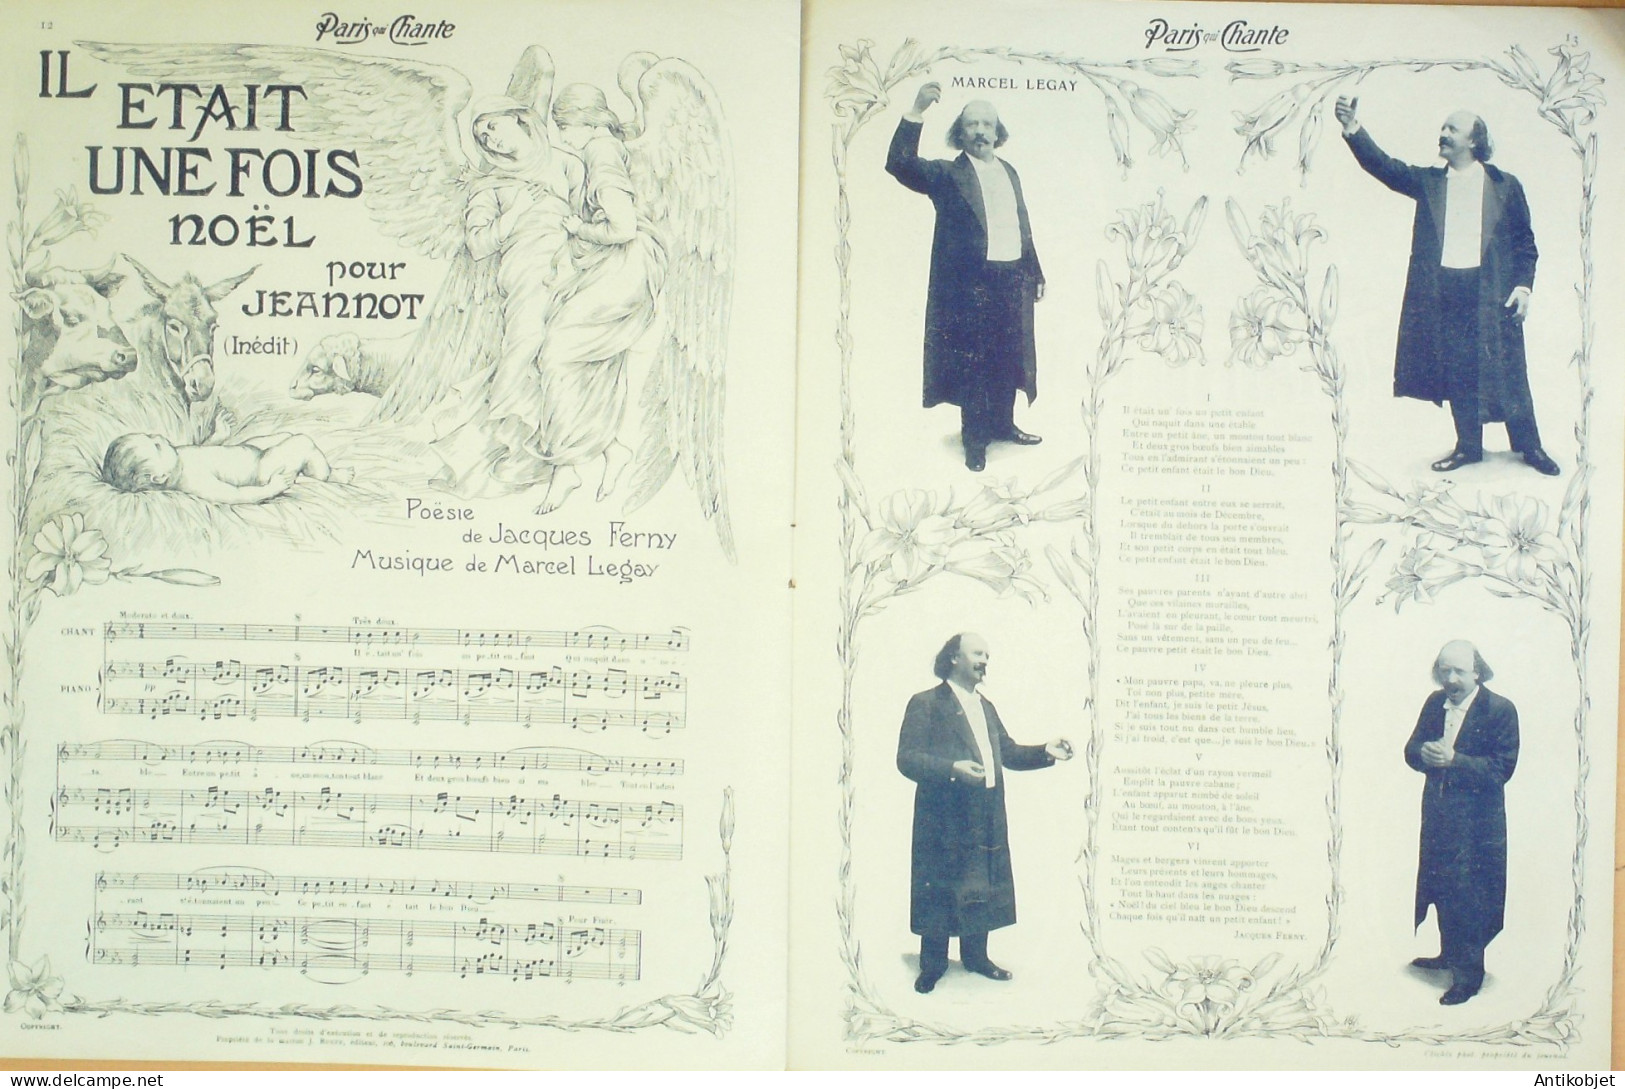 12
Paris qui Chante
IL
ETAIT
UNE FOIS
NOËL
pour
JEANNOT
(Inédit)
Poësie
de Jacques Ferny
Musique de Marcel Legay
Moderato et doux.
Très doux.
CHANT
Il é-tait un' fois un pe-tit en-fant Qui naquit dans u-ne é-
PIANO
pp
ta- ble Entre un petit â- ne, un mouton tout blanc Et deux gros bœufs bien ai ma- bles Tout en l'admi-
rant s'étonnaient un peu Ce pe-tit en-fant é-tait le bon Dieu
Pour Finir.
COPYRIGHT.
Tous droits d'exécution et de reproduction réservés.
Propriété de la maison J. Rueff, éditeur, 106, boulevard Saint-Germain, Paris.
Paris qui Chante
13
MARCEL LEGAY
I
Il était un' fois un petit enfant
Qui naquit dans une étable
Entre un petit âne, un mouton tout blanc
Et deux gros bœufs bien aimables
Tous en l'admirant s'étonnaient un peu :
Ce petit enfant était le bon Dieu.
II
Le petit enfant entre eux se serrait,
C'était au mois de Décembre,
Lorsque du dehors la porte s'ouvrait
Il tremblait de tous ses membres,
Et son petit corps en était tout bleu,
Ce petit enfant était le bon Dieu.
III
Ses pauvres parents n'ayant d'autre abri
Que ces vilaines murailles,
L'avaient en pleurant, le cœur tout meurtri,
Posé là sur de la paille,
Sans un vêtement, sans un peu de feu...
Ce pauvre petit était le bon Dieu.
IV
« Mon pauvre papa, va, ne pleure plus,
Toi non plus, petite mère,
Dit l'enfant, je suis le petit Jésus,
J'ai tous les biens de la terre,
Si je suis tout nu dans cet humble lieu,
Si j'ai froid, c'est que... je suis le bon Dieu. »
V
Aussitôt l'éclat d'un rayon vermeil
Emplit la pauvre cabane ;
L'enfant apparut nimbé de soleil
Au bœuf, au mouton, à l'âne,
Qui le regardaient avec de bons yeux,
Étant tout contents qu'il fût le bon Dieu.
VI
Mages et bergers vinrent apporter
Leurs présents et leurs hommages,
Et l'on entendit les anges chanter
Tout là-haut dans les nuages :
« Noël ! du ciel bleu le bon Dieu descend
Chaque fois qu'il naît un petit enfant ! »
JACQUES FERNY.
COPYRIGHT.
Clichés phot. propriété du journal.
Antikobjet